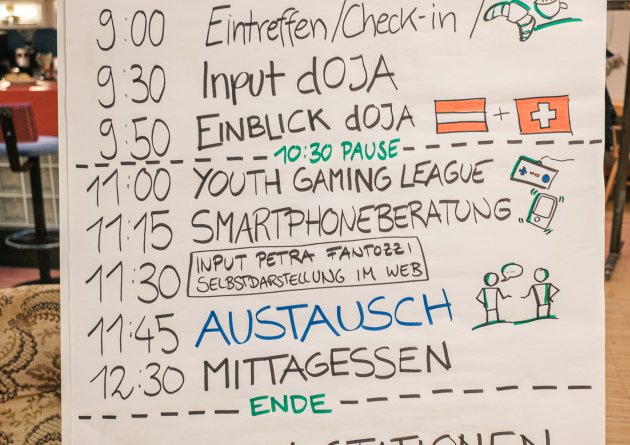 9:00 Eintreffen/Check-in/
9:30 Input dOJA
9:50 EINBLICK dOJA +
10:30 PAUSE
11:00 YOUTH GAMING LEAGUE
11:15 SMARTPHONEBERATUNG
11:30 INPUT PETRA FANTOZZI
SELBSTDARSTELLUNG IM WEB
11:45 AUSTAUSCH
12:30 MITTAGESSEN
ENDE